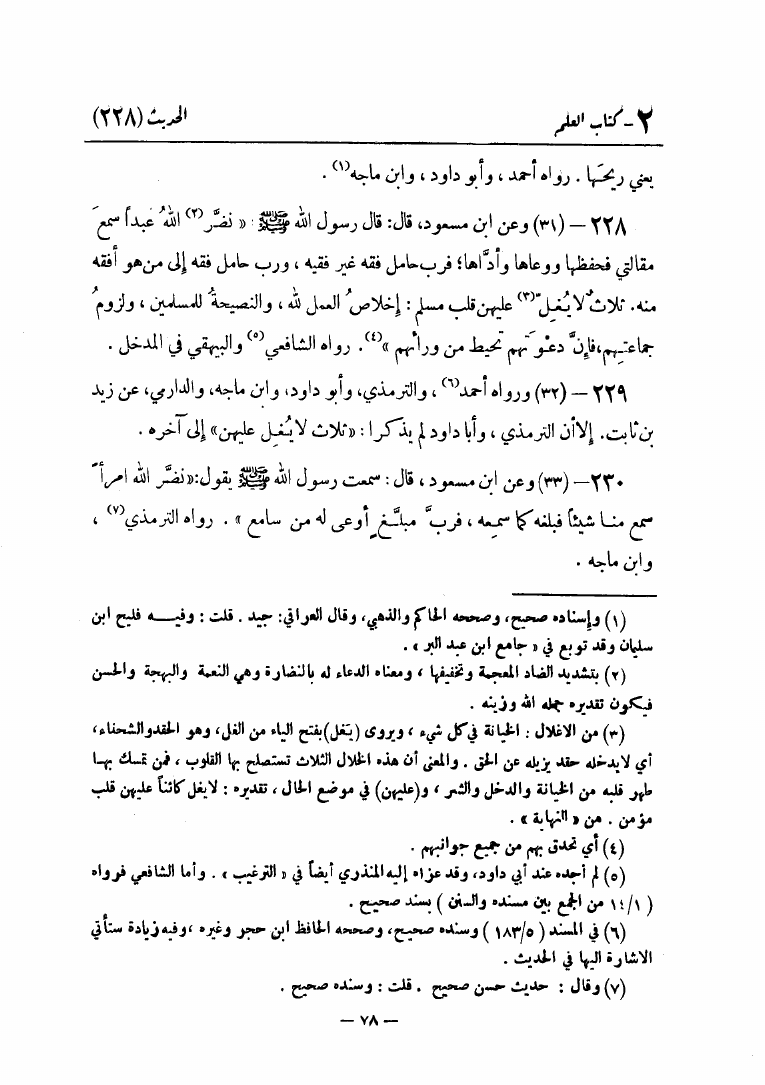 ٢ - كتاب العلم
الحديث (٢٢٨)
يعني ريحَها . رواه أحمد ، وأبو داود ، وابن ماجه(١) .
٢٢٨ – (٣١) وعن ابن مسعود، قال: قال رسول الله ﷺ : « نضَّر(٢) اللهُ عبداً سمعَ
مقالتي فحفظها ووعاها وأدَّاها؛ فرب حامل فقه غير فقيه ، ورب حامل فقه إلى من هو أفقه
منه. ثلاثٌ لا يُغِلّ(٣) عليهن قلب مسلم : إخلاصُ العمل لله ، والنصيحةُ للمسلمين ، ولزومُ
جماعتهم،فإنَّ دعْوَتهم تحيط من ورائهم »(٤). رواه الشافعي(٥) والبيهقي في المدخل .
٢٢٩ – (٣٢) ورواه أحمد(٦) ، والترمذي، وأبو داود، وابن ماجه، والدارمي، عن زيد
بن ثابت. إلا أن الترمذي ، وأبا داود لم يذكرا : «ثلاث لا يُغِل عليهن» إلى آخره .
٢٣٠ – (٣٣) وعن ابن مسعود ، قال : سمعت رسول الله ﷺ يقول:«نضَّر الله امرأً
سمع منا شيئاً فبلغه كما سمِعه ، فربَّ مبلَّغٍ أوعى له من سامع » . رواه الترمذي(٧) ،
وابن ماجه .
(١) وإسناده صحيح، وصححه الحاكم والذهبي، وقال العراقي: جيد . قلت : وفيه فليح ابن
سليمان وقد توبع في « جامع ابن عبد البر » .
(٢) بتشديد الضاد المعجمة وتخفيفها ، ومعناه الدعاء له بالنضارة وهي النعمة والبهجة والحسن
فيكون تقديره جمله الله وزينه .
(٣) من الاغلال : الخيانة في كل شيء ، ويروى (يَغل) بفتح الياء من الغل، وهو الحقد والشحناء،
أي لا يدخله حقد يزيله عن الحق . والمعنى أن هذه الخلال الثلاث تستصلح بها القلوب ، فمن تمسك بها
طهر قلبه من الخيانة والدخل والشر ، و(عليهن) في موضع الحال ، تقديره : لا يغل كائناً عليهن قلب
مؤمن . من « النهاية » .
(٤) أي تحدق بهم من جميع جوانبهم .
(٥) لم أجده عند أبي داود، وقد عزاه إليه المنذري أيضاً في « الترغيب » . وأما الشافعي فرواه
( ١٤/١ من الجمع بين مسنده والسنن ) بسند صحيح .
(٦) في المسند ( ١٨٣/٥ ) وسنده صحيح، وصححه الحافظ ابن حجر وغيره ،وفيه زيادة ستأتي
الاشارة اليها في الحديث .
(٧) وقال : حديث حسن صحيح . قلت : وسنده صحيح .
– ٧٨ –